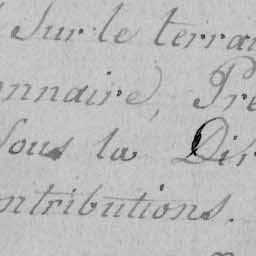 Sur le terrai
onnaire, Pré
Sous la Dir
ontributions.